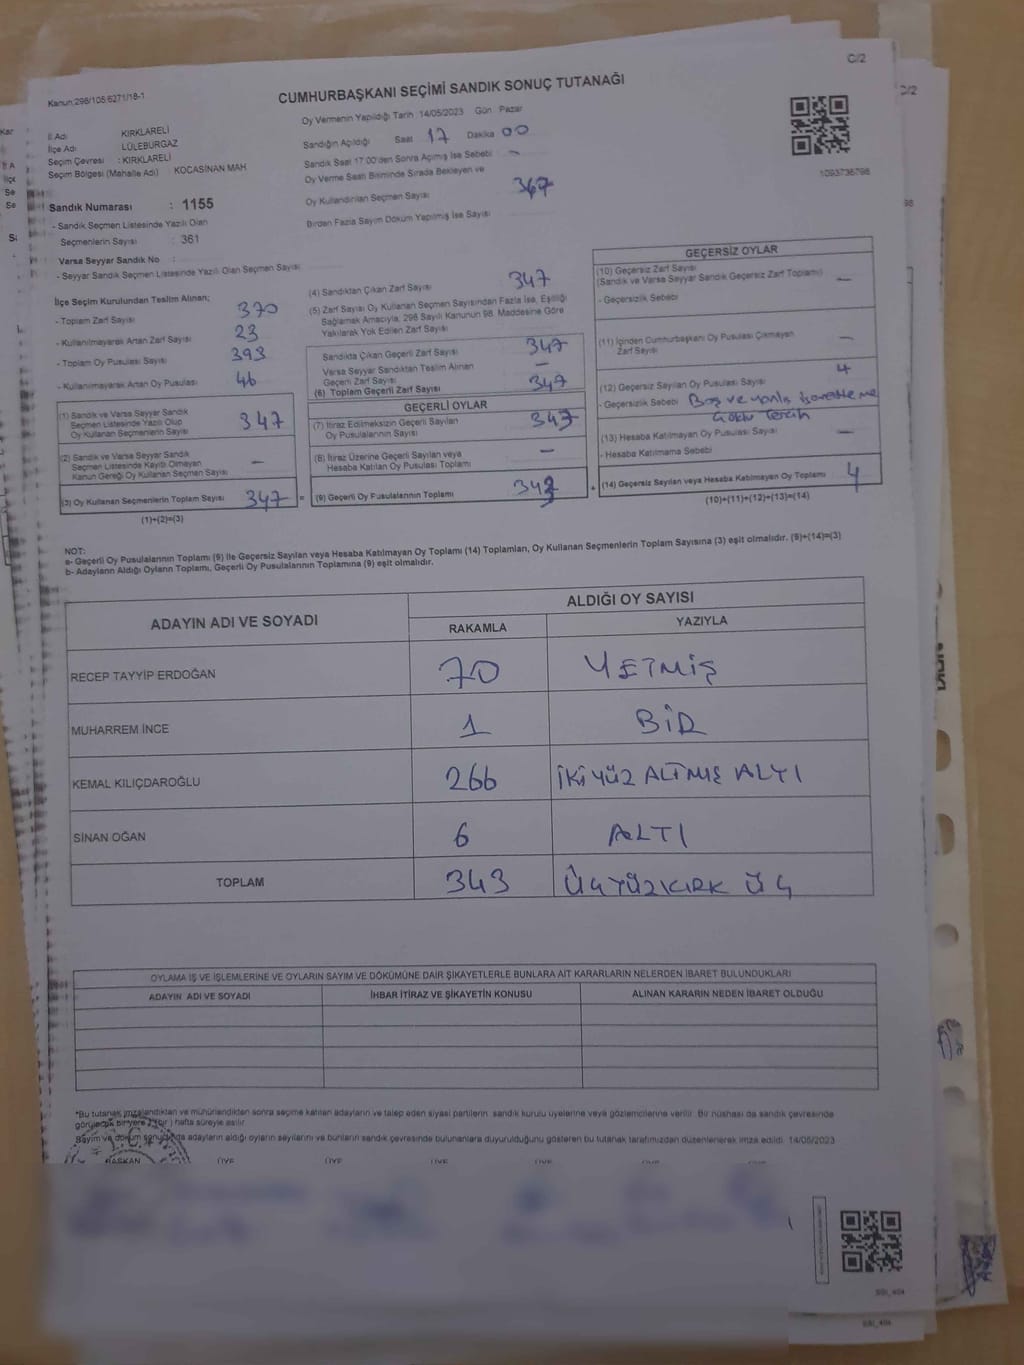 C/2
Kanun:298/105,6271/18-1
CUMHURBAŞKANI SEÇİMİ SANDIK SONUÇ TUTANAĞI
Oy Vermenin Yapıldığı Tarih 14/05/2023 Gün Pazar
İl Adı KIRKLARELİ
İlçe Adı LÜLEBURGAZ
Seçim Çevresi : KIRKLARELİ
Seçim Bölgesi (Mahalle Adı) KOCASİNAN MAH
Sandığın Açıldığı Saat 17 Dakika 00
Sandık Saat 17:00'den Sonra Açılmış İse Sebebi -
Oy Verme Saati Bitiminde Sırada Bekleyen ve
Oy Kullandırılan Seçmen Sayısı 347
Birden Fazla Sayım Döküm Yapılmış İse Sayısı
1093736798
Sandık Numarası : 1155
- Sandık Seçmen Listesinde Yazılı Olan
Seçmenlerin Sayısı : 361
Varsa Seyyar Sandık No :
- Seyyar Sandık Seçmen Listesinde Yazılı Olan Seçmen Sayısı
İlçe Seçim Kurulundan Teslim Alınan;
- Toplam Zarf Sayısı 370
- Kullanılmayarak Artan Zarf Sayısı 23
- Toplam Oy Pusulası Sayısı 393
- Kullanılmayarak Artan Oy Pusulası 46
(1) Sandık ve Varsa Seyyar Sandık
Seçmen Listesinde Yazılı Olup
Oy Kullanan Seçmenlerin Sayısı 347
(2) Sandık ve Varsa Seyyar Sandık
Seçmen Listesinde Kayıtlı Olmayan
Kanun Gereği Oy Kullanan Seçmen Sayısı -
(3) Oy Kullanan Seçmenlerin Toplam Sayısı 347 =
(1)+(2)=(3)
(4) Sandıktan Çıkan Zarf Sayısı 347
(5) Zarf Sayısı Oy Kullanan Seçmen Sayısından Fazla İse, Eşitliği
Sağlamak Amacıyla, 298 Sayılı Kanunun 98. Maddesine Göre
Yakılarak Yok Edilen Zarf Sayısı
Sandıkta Çıkan Geçerli Zarf Sayısı 347
Varsa Seyyar Sandıktan Teslim Alınan
Geçerli Zarf Sayısı -
(6) Toplam Geçerli Zarf Sayısı 347
GEÇERLİ OYLAR
(7) İtiraz Edilmeksizin Geçerli Sayılan
Oy Pusulalarının Sayısı 343
(8) İtiraz Üzerine Geçerli Sayılan veya
Hesaba Katılan Oy Pusulası Toplamı -
(9) Geçerli Oy Pusulalarının Toplamı 343 +
GEÇERSİZ OYLAR
(10) Geçersiz Zarf Sayısı
(Sandık ve Varsa Seyyar Sandık Geçersiz Zarf Toplamı) -
- Geçersizlik Sebebi
(11) İçinden Cumhurbaşkanı Oy Pusulası Çıkmayan
Zarf Sayısı -
(12) Geçersiz Sayılan Oy Pusulası Sayısı 4
- Geçersizlik Sebebi Boş ve yanlış işaretleme
Çoklu Tercih
(13) Hesaba Katılmayan Oy Pusulası Sayısı -
- Hesaba Katılmama Sebebi
(14) Geçersiz Sayılan veya Hesaba Katılmayan Oy Toplamı 4
(10)+(11)+(12)+(13)=(14)
NOT:
a- Geçerli Oy Pusulalarının Toplamı (9) ile Geçersiz Sayılan veya Hesaba Katılmayan Oy Toplamı (14) Toplamları, Oy Kullanan Seçmenlerin Toplam Sayısına (3) eşit olmalıdır. (9)+(14)=(3)
b- Adayların Aldığı Oyların Toplamı, Geçerli Oy Pusulalarının Toplamına (9) eşit olmalıdır.
ADAYIN ADI VE SOYADI ALDIĞI OY SAYISI
RAKAMLA YAZIYLA
RECEP TAYYİP ERDOĞAN 70 YETMİŞ
MUHARREM İNCE 1 BİR
KEMAL KILIÇDAROĞLU 266 İKİ YÜZ ALTMIŞ ALTI
SİNAN OĞAN 6 ALTI
TOPLAM 343 ÜÇYÜZKIRK ÜÇ
OYLAMA İŞ VE İŞLEMLERİNE VE OYLARIN SAYIM VE DÖKÜMÜNE DAİR ŞİKAYETLERLE BUNLARA AİT KARARLARIN NELERDEN İBARET BULUNDUKLARI
ADAYIN ADI VE SOYADI İHBAR İTİRAZ VE ŞİKAYETİN KONUSU ALINAN KARARIN NEDEN İBARET OLDUĞU
*Bu tutanak imzalandıktan ve mühürlendikten sonra seçime katılan adayların ve talep eden siyasi partilerin sandık kurulu üyelerine veya gözlemcilerine verilir. Bir nüshası da sandık çevresinde
görülecek bir yere 1 (bir) hafta süreyle asılır.
Sayım ve döküm sonucunda adayların aldığı oyların sayılarını ve bunların sandık çevresinde bulunanlara duyurulduğunu gösteren bu tutanak tarafımızdan düzenlenerek imza edildi. 14/05/2023
BAŞKAN ÜYE ÜYE ÜYE ÜYE ÜYE ÜYE